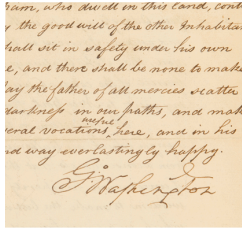 ham, who dwell in this land, cont
y the good will of the other Inhabitan
hall sit in safety under his own
e, and there shall be none to make
ay the father of all mercies scatter
darkness in our paths, and mak
useful
veral vocations here, and in his
nd way everlastingly happy.
G. Washington